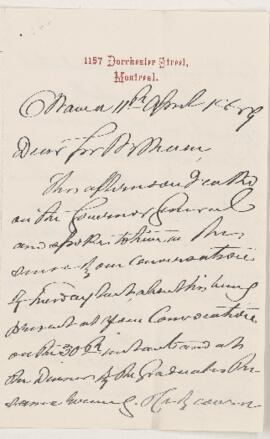 1157 Dorchester Street,
Montreal.
Ottawa 11th April 1889
Dear Sir Wm
This afternoon I called
on the Governor General
and spoke to him in the
sense of our conversation
of Tuesday last about his being
present at your Convocation
on the 30th instant and at
the Dinner of the Graduates the
same evening. He